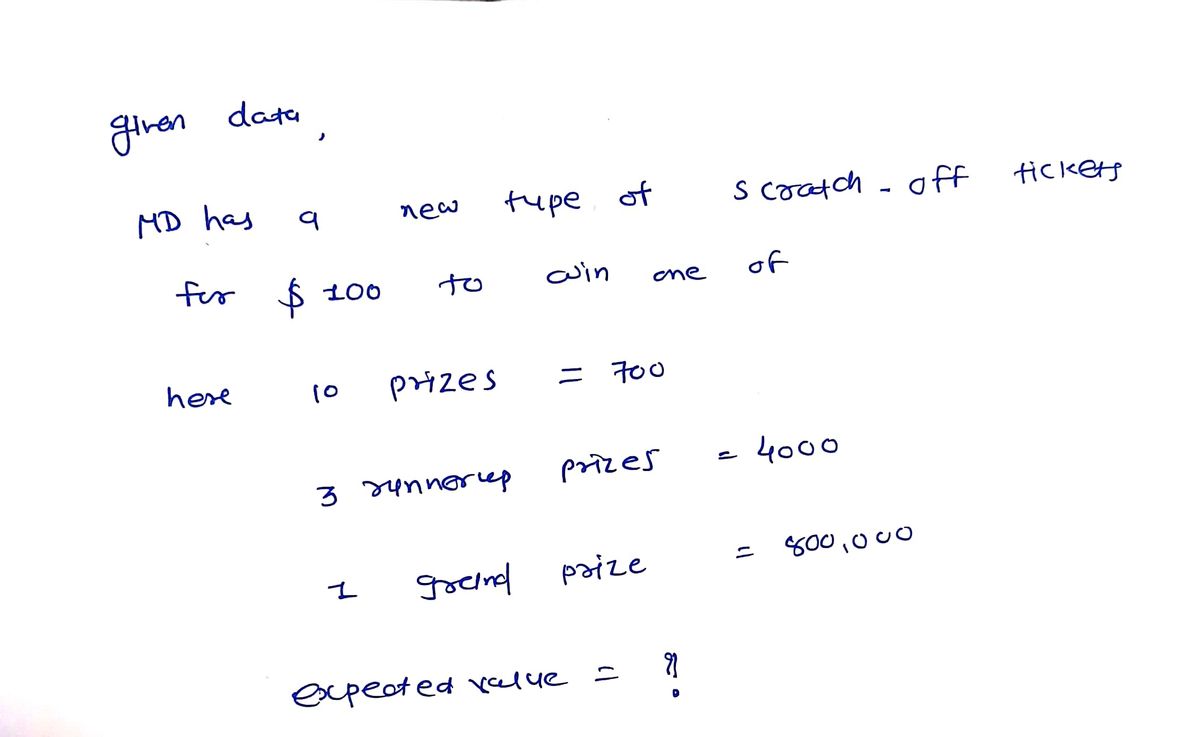 given data,
MD has a new type of scratch-off tickets
for $100 to win one of
here 10 prizes = 700
3 runnerup prizes = 4000
1 grand prize = 800,000
expected value = ?